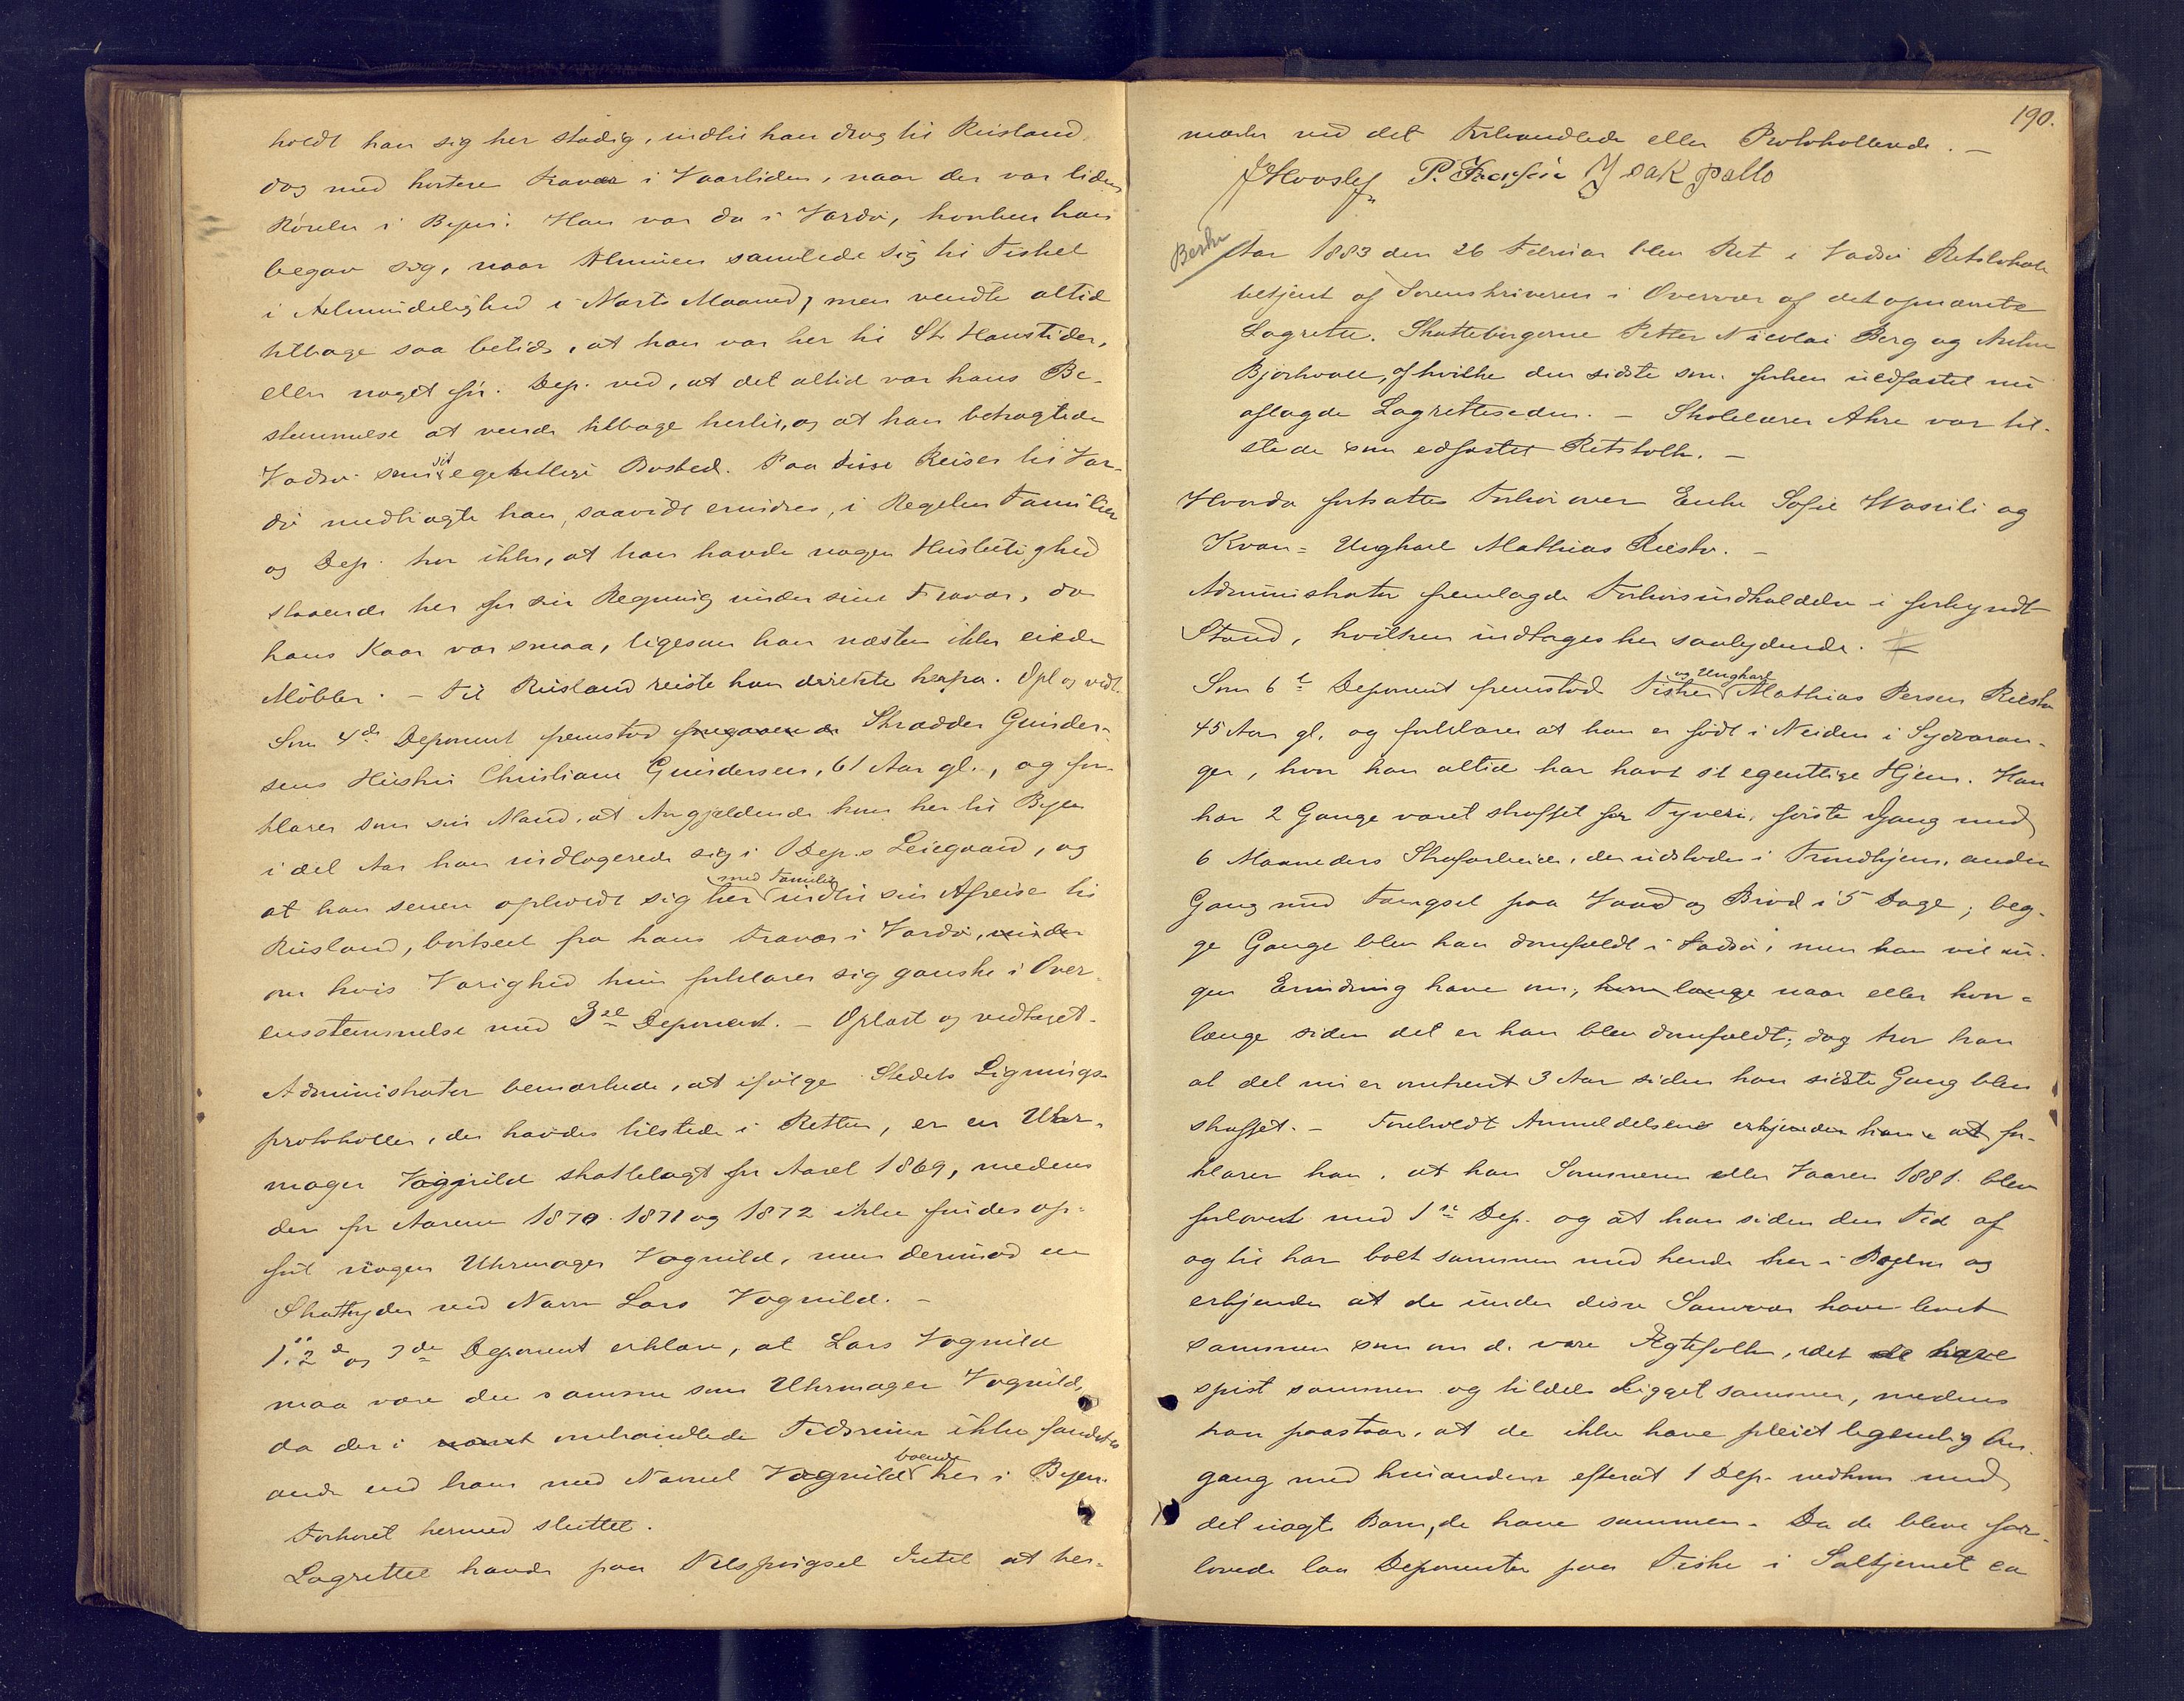 holdt han sig her stadig, indtil han drog til Rusland
dog med kortere Fravær i Vaartiden, naar der var liden
Rørelse i Byen. Han var da i Vardø, hvorhen han
begav sig, naar Almuen samlede sig til Fisket
i Almindelighed i Marts Maaned, men vendte altid
tilbage saa betids, at han var her til St Hanstider,
eller noget før. Dep. ved, at det altid var hans Be-
stemmelse at vende tilbage hertil, og at han betragtede
Vadsø som sit egentlige Bosted. Paa disse Reiser til Var-
dø medbragte han, saavidt erindres, i Regelen Familien
og Dep. tror ikke, at han havde nogen Husleilighed
staaende her for sin Regning under sine Fravær, da
hans Kaar var smaa, ligesom han næsten ikke eiede
Møbler. - Til Rusland reiste han direkte herfra. Opl og vedt.
Som 4de Deponent fremstod foregaaende Skrædder Gunder-
sens Hustru Christiane Gundersen, 61 Aar gl., og for-
klarer som sin Mand, at Angjældende kom her til Byen
i det Aar han indlogerede sig i Dep.s Leiegaard, og
at han senere opholdt sig her med Familie indtil sin Afreise til
Rusland, bortseet fra hans Fravær i Vardø, under
om hvis Varighed hun forklarer sig ganske i Over-
ensstemmelse med 3die Deponent. - Oplæst og vedtaget.
Administrator bemærkede, at ifølge Stedets Lignings-
protokoller, der havdes tilstede i Retten, er en Uhr-
mager Vognild skattelagt for Aaret 1869, medens
der for Aarene 1870. 1871 og 1872 ikke findes op-
ført nogen Uhrmager Vognild, men derimod en
Skatteyder ved Navn Lars Vognild. -
1. 2d og 3de Deponent erklære, at Lars Vognild
maa være den samme som Uhrmager Vognild,
da der i omhandlede Tidsrum ikke fandtes
andre end ham med Navnet Vognild boende her i Byen.
Forhøret hermed sluttet.
Lagrettet havde paa Tilspørgsel Intet at be-
190.
mærke ved det Forhandlede eller Protokollerede. -
Isak Pallo
Beskr
Aar 1883 den 26 Februar blev Ret i Vadsø Retslokale
betjent af Sorenskriveren i Overvær af det opnævnte
Lagrette. Skatteborgerne Petter Nicolai Berg og Anton
Bjørkvall, af hvilke den sidste som forhen uedfæstet nu
aflagde Lagretteseden. - Skolelærer Akre var til-
stede som edfæstet Retstolk. -
Hvorda fortsattes Forhør over Enke Sofie Wasuli og
Kvæn-Ungkarl Mathias Riesto. -
Administrator fremlagde Forhørsindkaldelse i forkyndt
Stand, hvilken indtages her saalydende. #
Som 6te Deponent fremstod Fisker og Ungkarl Mathias Persen Riesto
45 Aar gl. og forklarer at han er født i Neiden i Sydvaran-
ger, hvor han altid har havt sit egentlige Hjem. Han
har 2 Gange været straffet for Tyveri, første Gang med
6 Maaneders Strafarbeide, der udstodes i Trondhjem, anden
Gang med Fængsel paa Vand og Brød i 5 Dage; beg-
ge Gange blev han domfældt i Vadsø, men han vil in-
gen Erindring have om, hvorlænge naar eller hvor-
længe siden det er han blev domfældt; dog tror han
at det nu er omtrent 3 Aar siden han sidste Gang blev
straffet. - Foreholdt Anmeldelsen erkjender han at for-
klarer han, at han Sommeren eller Vaaren 1881. blev
forlovet med 1ste Dep. og at han siden den Tid af
og til har boet sammen med hende her i Byen og
erkjender at de under disse Samvær have levet
sammen som om de vare Ægtefolk, idet de have
spist sammen og tildels ligget sammen, medens
han paastaar, at de ikke have pleiet legemlig Om-
gang med hinanden efterat 1 Dep. nedkom med
det uægte Barn, de have sammen. Da de bleve for-
lovede laa Deponenten paa Fiske i Saltjernet ca